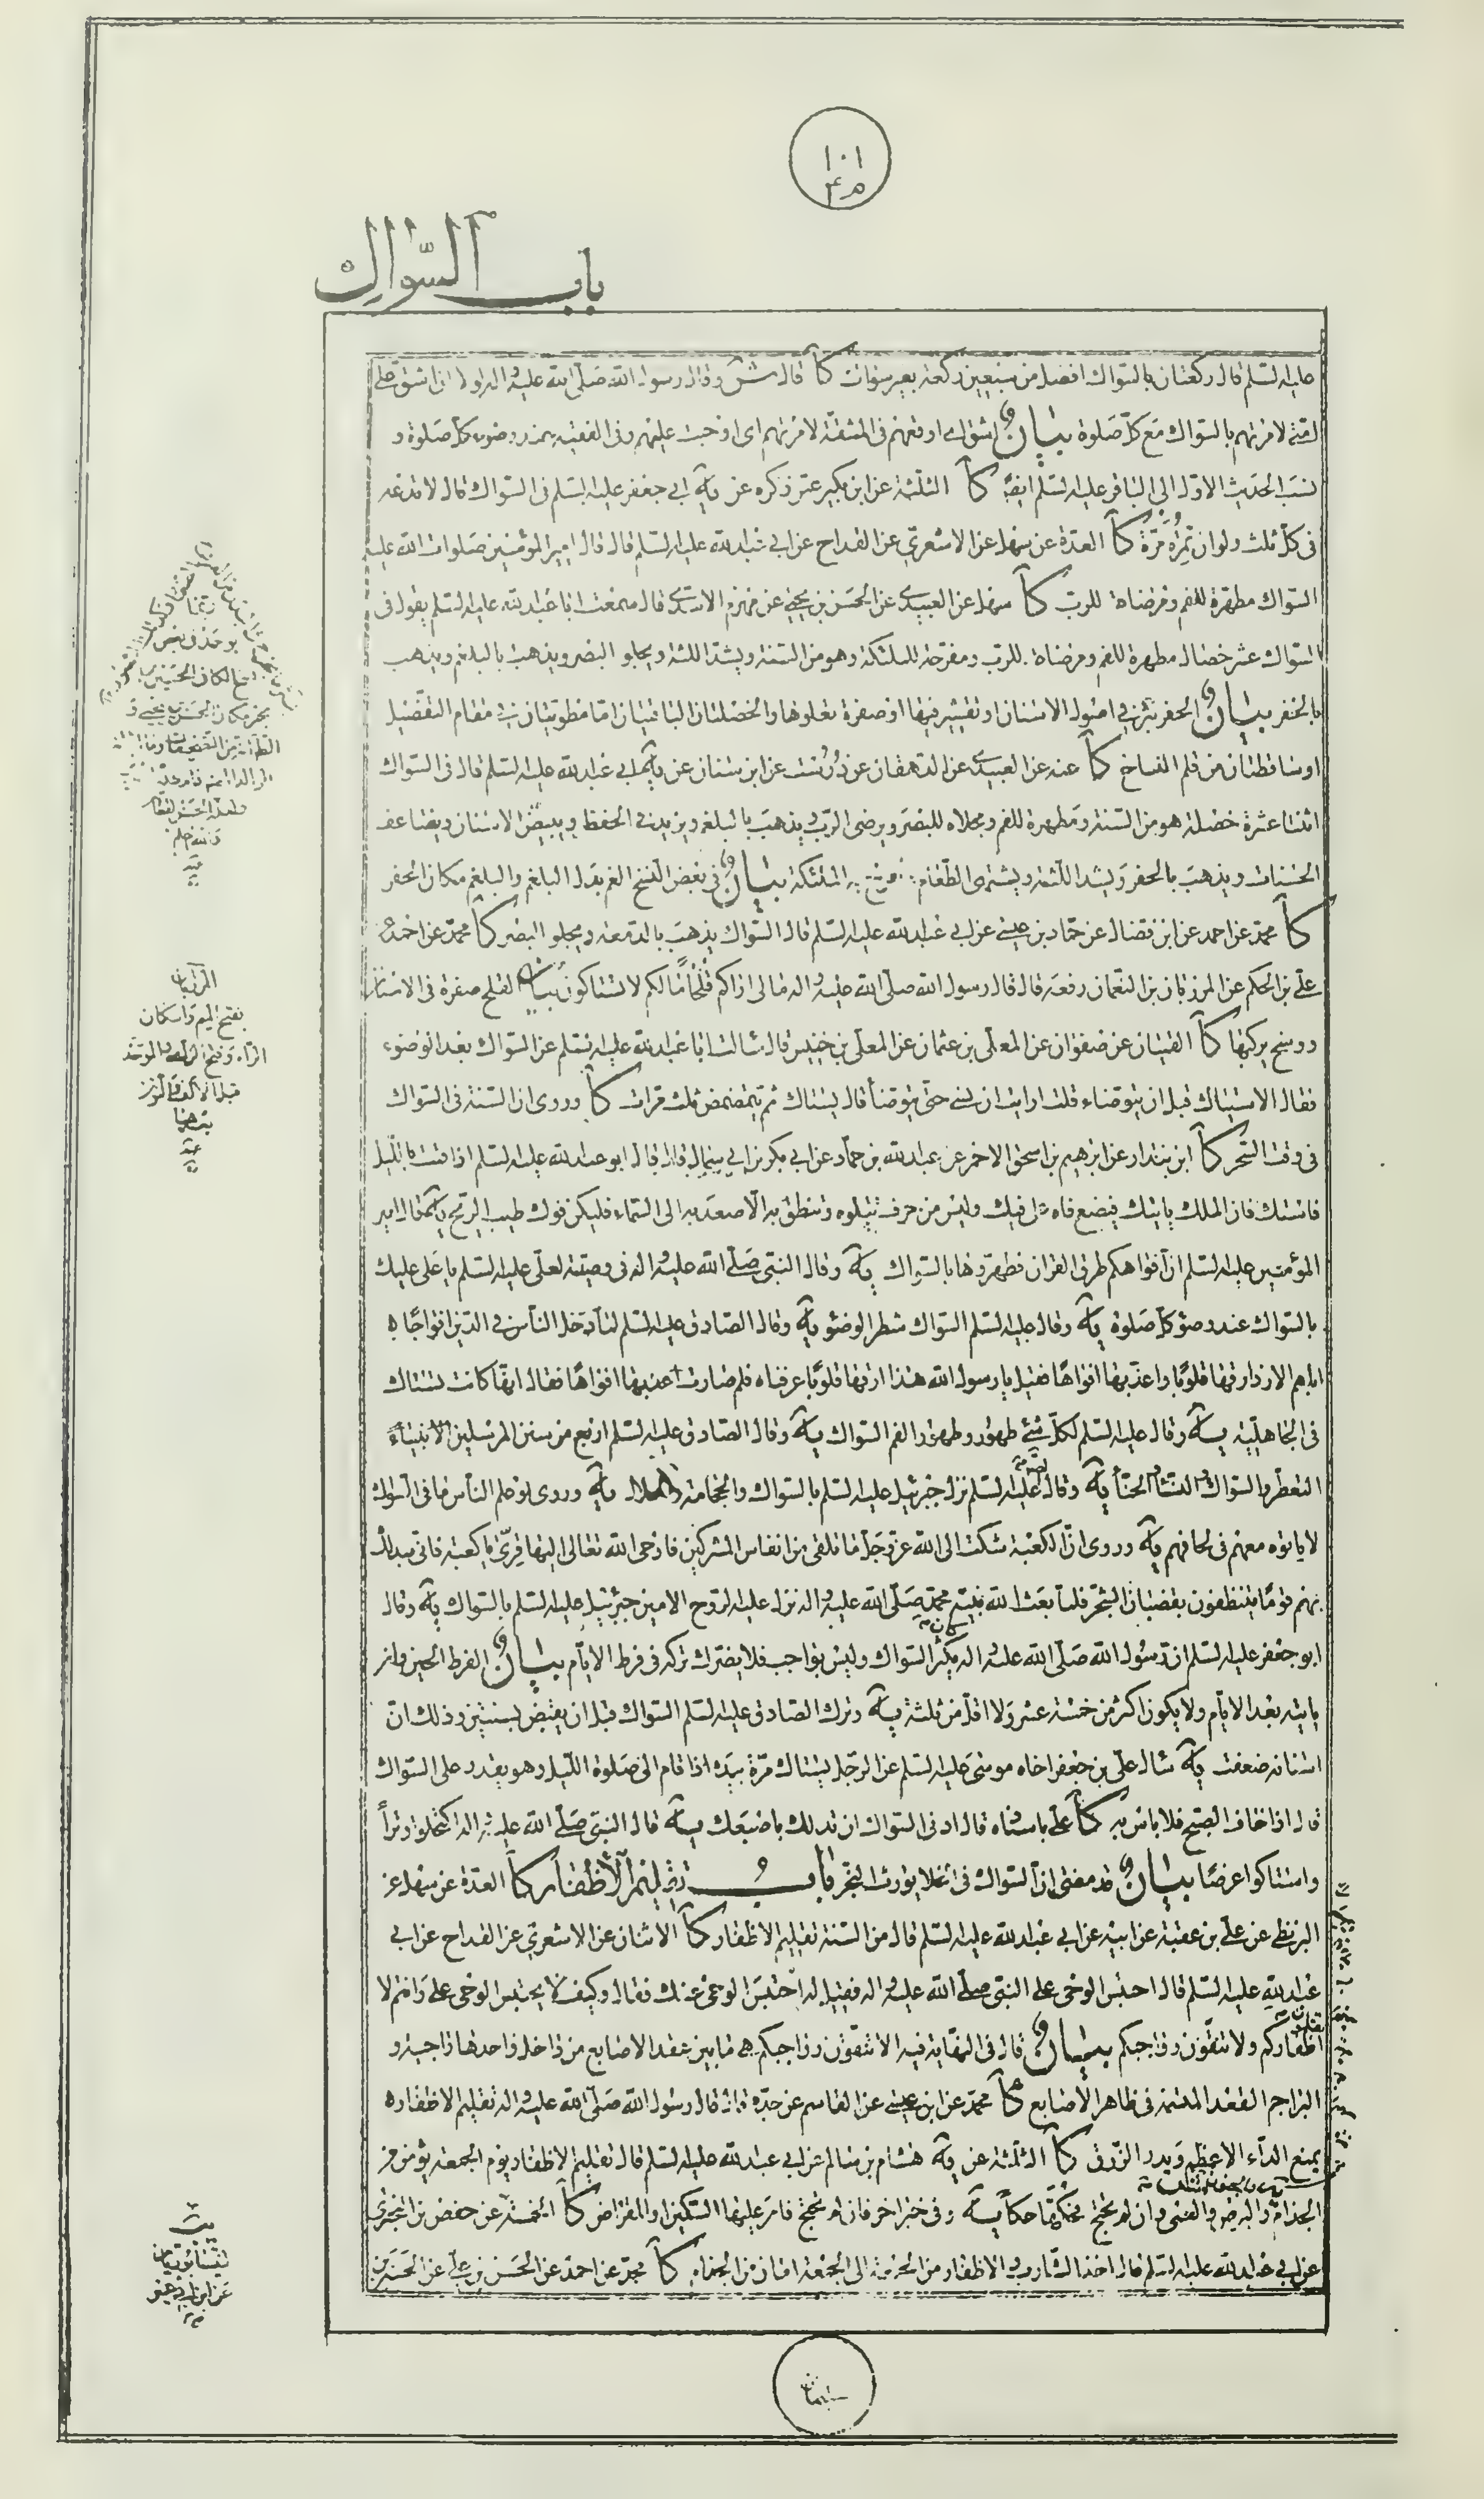 ١٠١
باب السّواك
عليه السّلم قال ركعتان بالسّواك افضل من سبعين ركعة بغير سواك كا قال وقال رسول الله صلّى الله عليه واله لولا ان اشق على
امّتى لامرتهم بالسّواك مع كلّ صلوة بيان اشق اى اوقعهم فى المشقّة لامرتهم اى اوجبت عليهم وفى الفقيه عند وضوء كلّ صلوة و
نسب الحديث الاول الى الباقر عليه السّلم ايضا كا الثلثة عن ابن بكير عمّن ذكره عن ابي جعفر عليه السّلم فى السّواك قال لا تدعه
فى كلّ ثلث ولو ان تمرّه مرّة كا العدّة عن سهل عن الاشعري عن القداح عن ابي عبد الله عليه السّلم قال قال امير المؤمنين صلوات الله عليه
السّواك مطهرة للفم ومرضاة للرب كا سهل عن العبيدي عن الحسن بن يحيى عن مهزم الاسدي قال سمعت ابا عبد الله عليه السّلم يقول فى
السّواك عشر خصال مطهرة للفم ومرضاة للرب ومفرحة للملئكة وهو من السّنة ويشدّ اللثة ويجلو البصر ويذهب بالبلغم ويذهب
بالحفر بيان الحفر بثر في اصول الاسنان او تقشير فيها او صفرة تعلوها والخصلتان الباقيتان امّا مطويتان في مقام التفصيل
او ساقطتان من قلم النساخ كا عنه عن العبيدي عن الدهقان عن درست عن ابن سنان عن ابي عبد الله عليه السّلم قال فى السّواك
اثنتا عشرة خصلة هو من السّنة ومطهرة للفم ومجلاه للبصر ويرضى الربّ ويذهب بالبلغم ويزيد في الحفظ ويبيض الاسنان ويضاعف
الحسنات ويذهب بالحفر ويشد اللّثة ويشهى الطّعام الملئكة بيان فى بعض النسخ الغم بدل البلغم والبلغم مكان الحفر
كا محمد عن احمد عن ابن فضال عن حمّاد بن عيسى عن ابي عبد الله عليه السّلم قال السّواك يذهب بالدمعة ويجلو البصر كا محمد عن احمد عن
علي بن الحكم عن المرزبان بن النّعمان رفعه قال قال رسول الله صلّى الله عليه واله ما لى اراكم قلحا ما لكم لا تستاكون بيان القلح صفرة فى الاسنان
ووسخ يركبها كا القميان عن صفوان عن المعلّى بن عثمان عن المعلى بن خنيس قال سألت ابا عبد الله عليه السّلم عن السّواك بعد الوضوء
فقال الاستياك قبل ان يتوضاء قلت ارايت ان نسى حتّى يتوضأ قال يستاك ثم يتمضمض ثلث مرات كا وروى ان السّنة فى السّواك
فى وقت السّحر كا ابن بندار عن ابرهيم بن اسحق الاحمر عن عبد الله بن حمّاد عن ابي بكر بن ابي سمال قال قال ابو عبد الله عليه السّلم اذا قمت بالليل
فاستك فان الملك ياتيك فيضع فاه على فيك وليس من حرف تتلوه وتنطق به الّا صعد به الى السّماء فليكن فوك طيب الريح يه قال امير
المؤمنين عليه السّلم ان افواهكم طرق القران فطهّروها بالسّواك يه وقال النبي صلّى الله عليه واله فى وصيته لعلي عليه السّلم يا على عليك
بالسّواك عند وضوء كلّ صلوة يه وقال عليه السّلم السّواك شطر الوضوء يه وقال الصّادق عليه السّلم لمّا دخل النّاس في الدّين افواجا
اتاهم الازد ارقها قلوبا واعذبها افواها فقيل يا رسول الله هذا ارقها قلوبا عرفناه فلم صارت اعذبها افواها فقال انها كانت تستاك
فى الجاهلية يه وقال عليه السّلم لكلّ شئ طهور وطهور الفم السّواك يه وقال الصّادق عليه السّلم اربع من سنن المرسلين
التعطّر والسّواك والنّساء والحنّاء يه وقال عليه السّلم نزل جبرئيل عليه السّلم بالسّواك والحجامة والخلال يه وروى لو علم النّاس ما فى السّواك
لاباتوه معهم فى لحافهم يه وروى انّ الكعبة شكت الى الله عزّوجلّ ما تلقى من انفاس المشركين فاوحى الله تعالى اليها قرّى يا كعبة فانى مبدلك
بهم قوما يتنظفون بقضبان الشّجر فلمّا بعث الله نبيّه محمد صلّى الله عليه واله نزل عليه الروح الامين جبرئيل عليه السّلم بالسّواك يه وقال
ابو جعفر عليه السّلم ان رسول الله صلّى الله عليه واله كان يكثر السّواك وليس بواجب فلا يضرك تركه فى فرط الايّام بيان الفرط الحين وان
ياتيه بعد الايّام ولا يكون اكثر من خمسة عشر ولا اقلّ من ثلثة يه وترك الصّادق عليه السّلم السّواك قبل ان يقبض بسنتين وذلك انّ
اسنانه ضعفت يه سال علي بن جعفر اخاه موسى عليه السّلم عن الرّجل يستاك مرّة بيده اذا قام الى صلوة اللّيل وهو يقدر على السّواك
قال اذا خاف الصّبح فلا باس به كا على باسناده قال ادنى السّواك ان تدلك باصبعك يه قال النبي صلّى الله عليه واله اكتحلوا وترا
واستاكوا عرضا بيان قد مضى ان السّواك فى الخلا يورث البخر باب تقليم الاظفار كا العدّة عن سهل عن
البزنطى عن علي بن عقبة عن ابيه عن ابي عبد الله عليه السّلم قال من السّنة تقليم الاظفار كا الاثنان عن الاشعري عن القداح عن ابي
عبد الله عليه السّلم قال احتبس الوحى على النبي صلّى الله عليه واله فقيل له احتبس الوحى عنك فقال وكيف لا يحتبس الوحى على وانتم لا
تقلّمون اظفاركم ولا تنقّون رواجبكم بيان قال فى النهاية فيه الا تنقّون رواجبكم هى ما بين عقد الاصابع من داخل واحدها راجبة و
البراجم العقد المتشنجة فى ظاهر الاصابع كا محمد عن ابن عيسى عن القاسم عن جدّه قال قال رسول الله صلّى الله عليه واله تقليم الاظفار
يمنع الدّاء الاعظم ويدر الرّزق كا الثلثة عن يه هشام بن سالم عن ابي عبد الله عليه السّلم قال تقليم الاظفار يوم الجمعة يؤمن من
الجذام والبرص والعمى وان لم تحتج فحكّها حكا يه وفى خبر اخر فان لم تحتج فامر عليها السّكين او المقراض كا الخمسة عن حفص بن البخترى
عن ابي عبد الله عليه السّلم قال اخذ الشّارب والاظفار من الجمعة الى الجمعة امان من الجذام كا محمد عن احمد عن الحسن بن علي عن الحسن بن
المرزبان
بفتح الميم واسكان
الرّاء وفتح الزاء والموحّدة
قبل الالف والنّون
بعدها